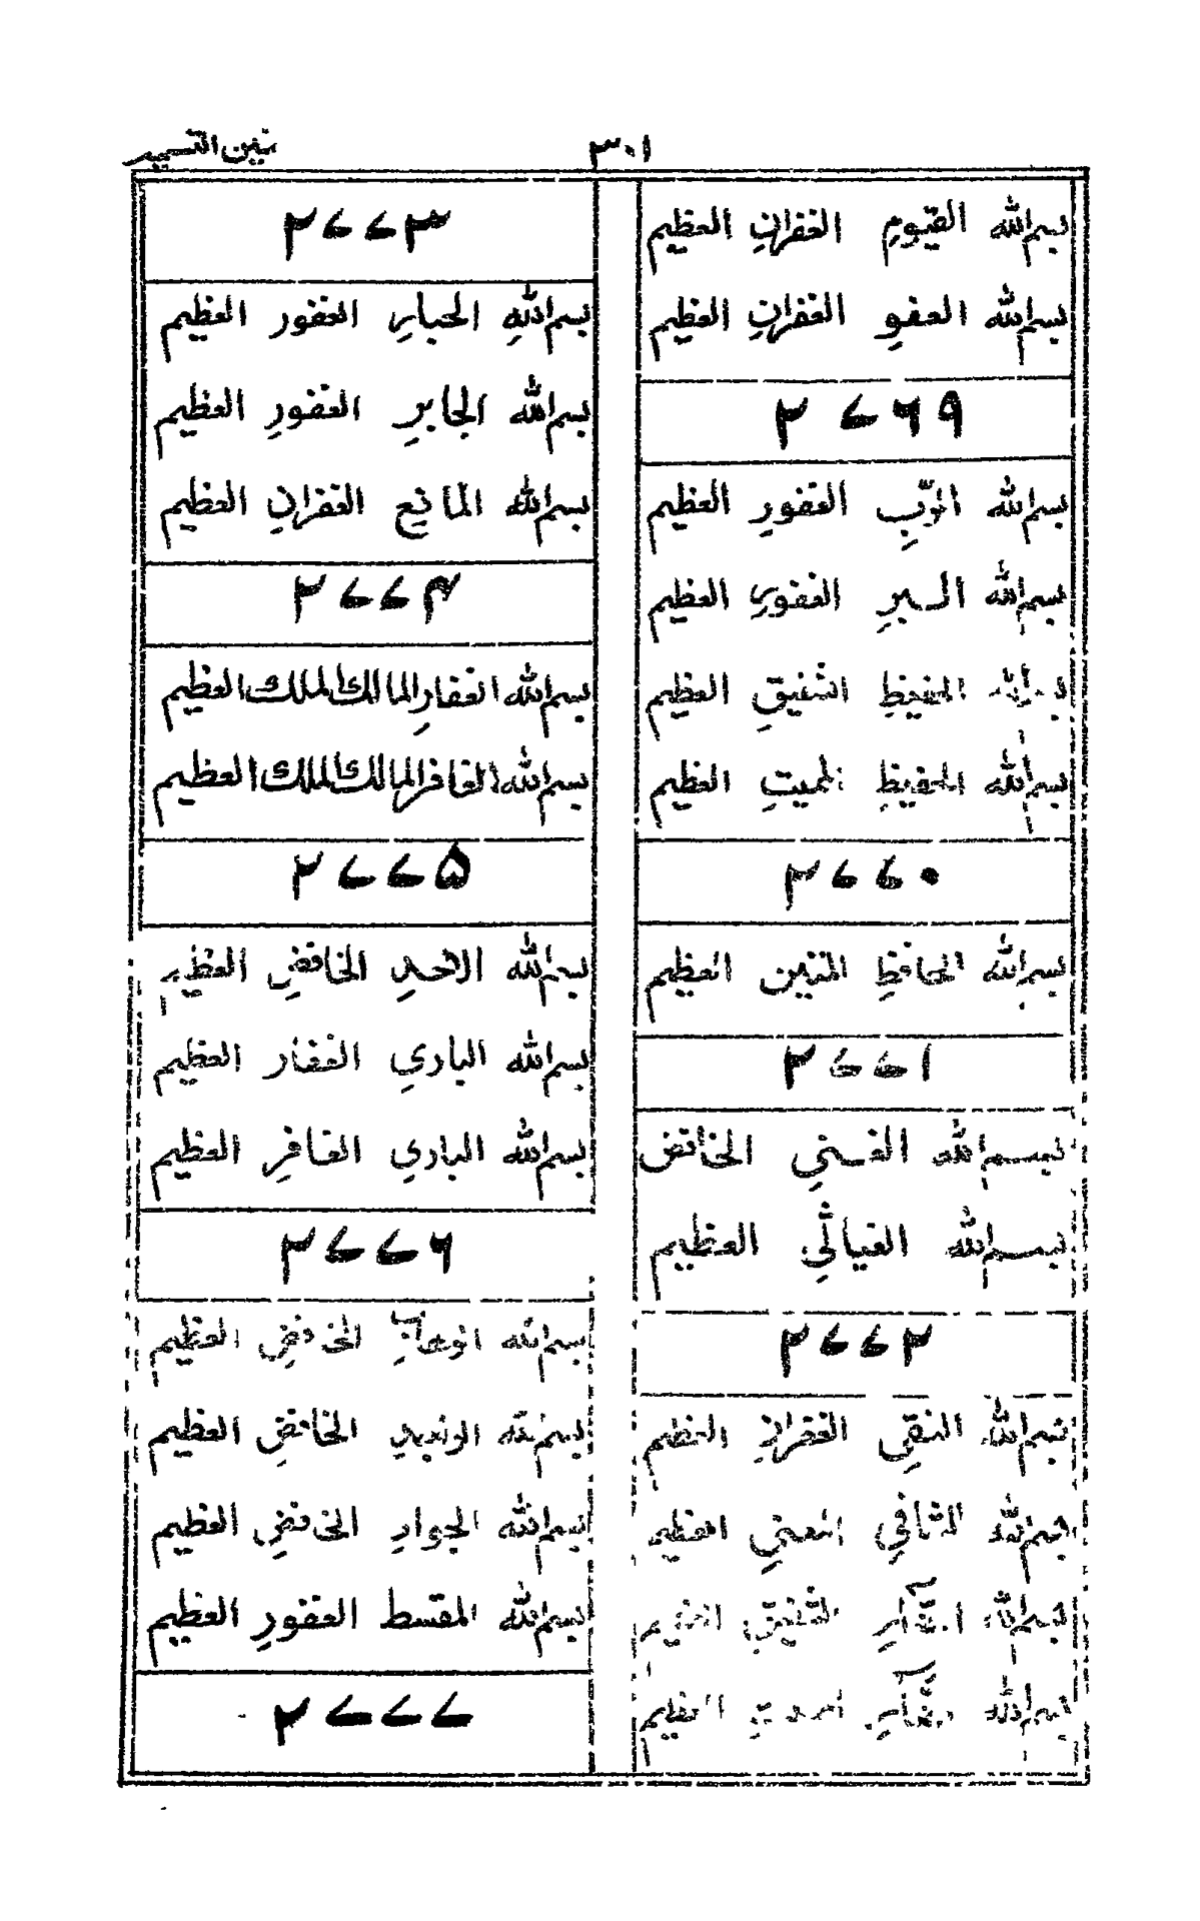 ۳۰۱
بسم الله القیومِ الغفرانِ العظیم
بسم الله العفوِ الغفرانِ العظیم
۲۷۶۹
بسم الله الرّبِ الغفورِ العظیم
بسم الله البرِ الغفورِ العظیم
بسم الله الحفیظِ الشفیقِ العظیم
بسم الله الحفیظِ الممیتِ العظیم
۲۷۷۰
بسم الله الحافظِ المتین العظیم
۲۷۷۱
بسم الله الغنیِ الخافض
بسم الله الغیاثیِ العظیم
۲۷۷۲
بسم الله النقیِ الغفرانِ العظیم
بسم الله الشافیِ المغنیِ العظیم
بسم الله الشفیقِ العظیم
بسم الله العظیم
۲۷۷۳
بسم اللهِ الجبارِ الغفور العظیم
بسم الله الجابرِ الغفورِ العظیم
بسم الله المانع الغفرانِ العظیم
۲۷۷۴
بسم الله الغفارِ المالك الملك العظیم
بسم الله الغافر المالك الملك العظیم
۲۷۷۵
بسم الله الاحدِ الخافضِ العظیم
بسم الله الباریِ الغفار العظیم
بسم الله الباریِ الغافرِ العظیم
۲۷۷۶
بسم الله الوهابِ الخافضِ العظیم
بسم الله الواجدِ الخافضِ العظیم
بسم الله الجوادِ الخافضِ العظیم
بسم الله المقسط الغفورِ العظیم
۲۷۷۷